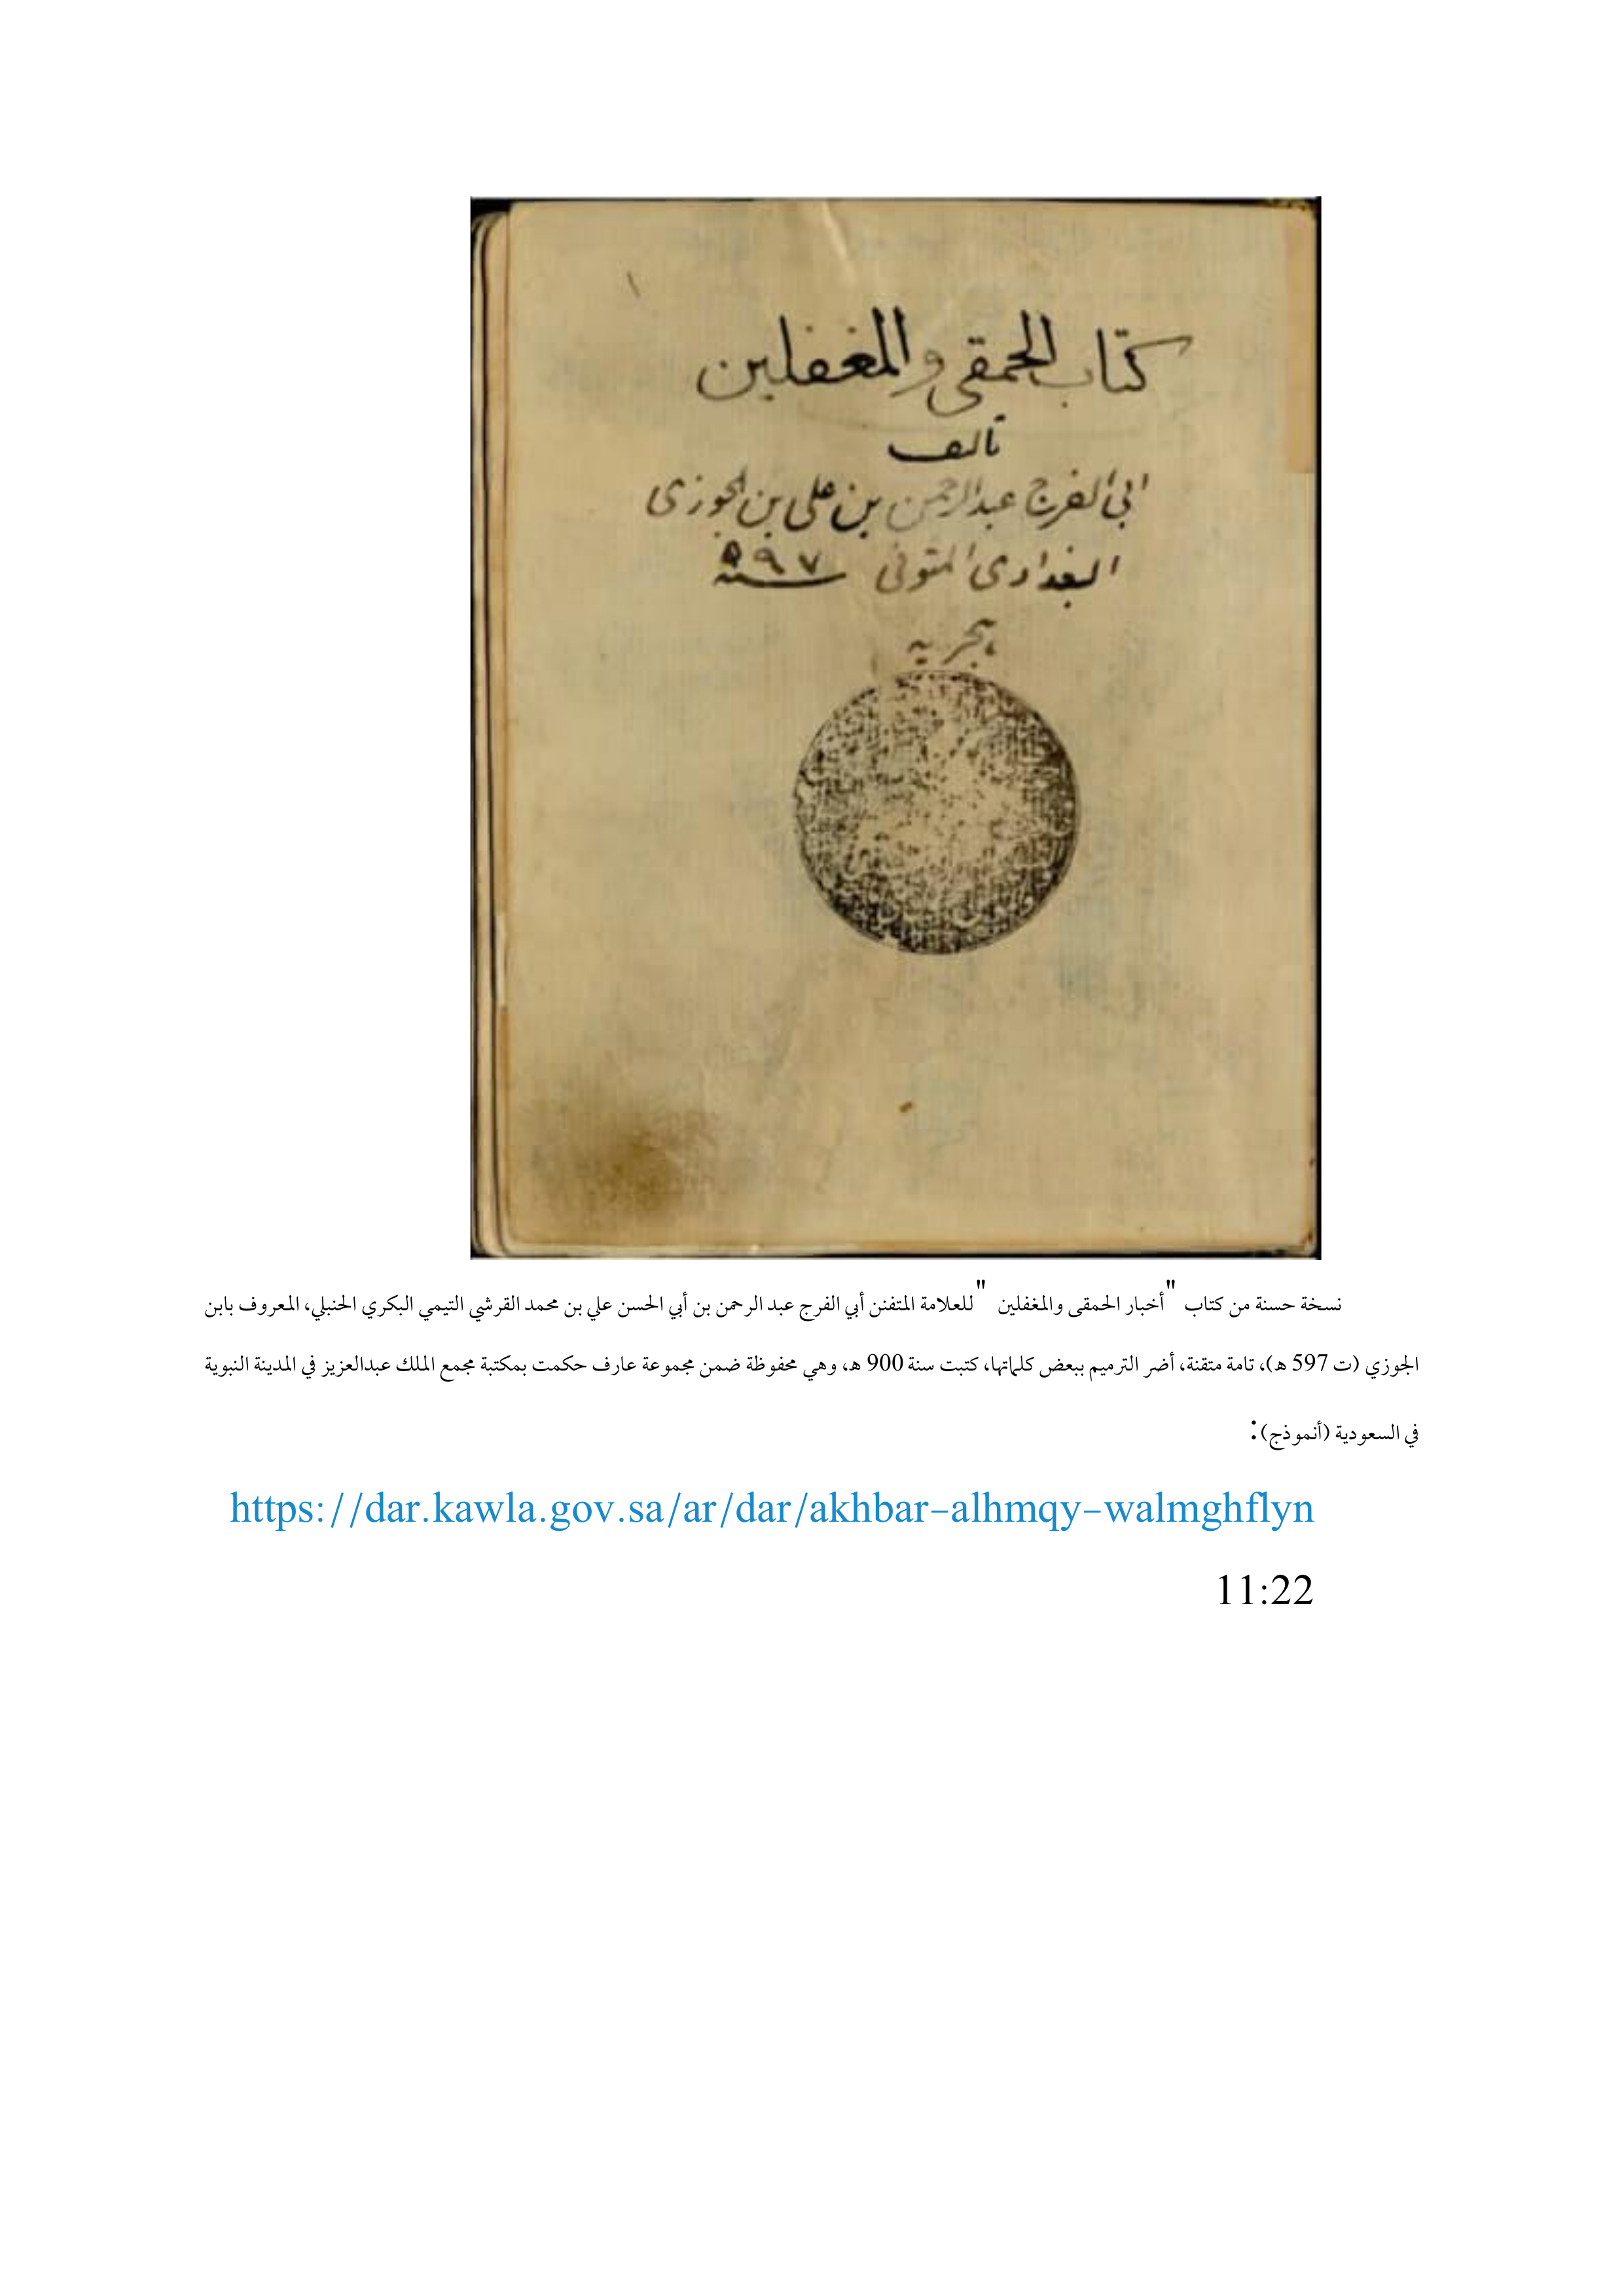 ١
كتاب الحمقى والمغفلين
تالف
ابي الفرج عبد الرحمن بن على بن الجوزى
البغدادى المتوفى سنة ٥٩٧
هجريه
نسخة حسنة من كتاب "أخبار الحمقى والمغفلين" للعلامة المتفنن أبي الفرج عبد الرحمن بن أبي الحسن علي بن محمد القرشي التيمي البكري الحنبلي، المعروف بابن
الجوزي (ت 597 هـ)، تامة متقنة، أضر الترميم ببعض كلماتها، كتبت سنة 900 هـ، وهي محفوظة ضمن مجموعة عارف حكمت بمكتبة مجمع الملك عبدالعزيز في المدينة النبوية
في السعودية (أنموذج):
https://dar.kawla.gov.sa/ar/dar/akhbar-alhmqy-walmghflyn
11:22